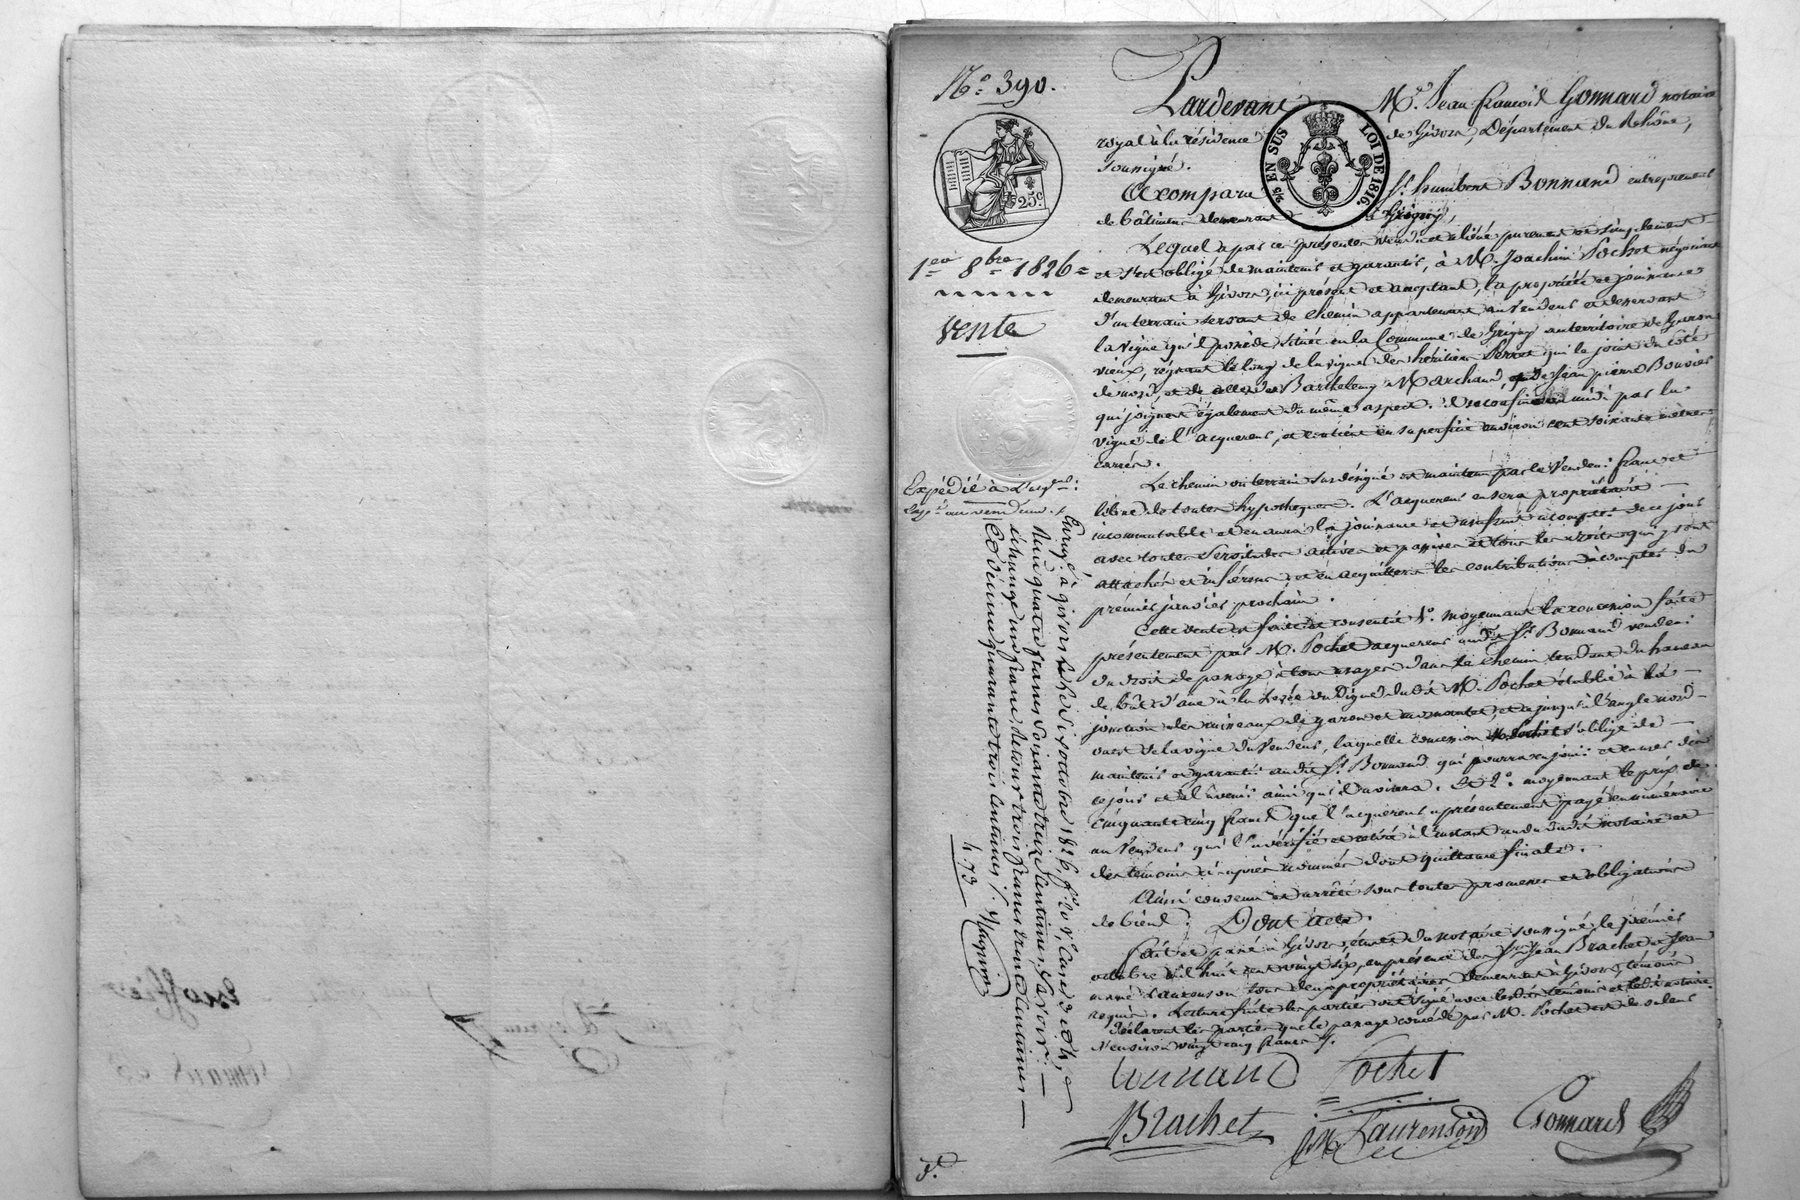 N.o 390.
1.er 8.bre 1826
Vente
25c
2/5 EN SUS LOI DE 1816.
Pardevant M.e Jean françois Gonnard notaire
royal à la résidence de Givors, Département du Rhône,
soussigné.
A comparu S.r humbert Bonnand entrepreneur
de bâtimens demeurant à Grigny,
Lequel a par ces présentes vendu et aliéné purement et simplement
et s'est obligé de maintenir et garantir, à M. Joachim Pochet négociant
demeurant à Givors, ici présent et acceptant, la propriété et jouissance
d'un terrain servant de chemin appartenant au vendeur et desservant
la vigne qu'il possède située en la Commune de Grigny au territoire de Garon
vieux, régnant le long de la vigne des héritiers Perret qui le joint du côté
de nord, et de celles de Barthelemy Marchand, et de Jean pierre Bouvier
qui joignent également du même aspect. Il se confine au midi par la
vigne de l'acquereur, et contient en superficie environ cent soixante mètres
carrés.
Le chemin ou terrain sus désigné est maintenu par le vendeur franc et
libre de toutes hypothèques. L'acquereur en sera propriétaire
incommutable et en aura la jouissance et usufruit à compter de ce jour
avec toutes servitudes actives et passives et tous les droits qui y sont
attachés et inhérens, et en acquittera les contributions à compter du
premier janvier prochain.
Cette vente est faite et consentie 1.o moyennant la concession faite
présentement par M. Pochet acquereur audit S.r Bonnand vendeur
du droit de passage à tous usages dans le chemin tendant du hameau
de à la levée ou digue dudit M. Pochet établie à la
jonction des ruisseaux de garon et et jusqu'à l'angle nord-
ouest de la vigne du vendeur, laquelle concession M. Pochet s'oblige de
maintenir et garantir audit S.r Bonnand qui pourra en jouir et en user dès
ce jour et à l'avenir ainsi qu'il avisera. Et 2.o moyennant le prix de
Cinquante cinq francs que l'acquereur a présentement payé en numéraire
au vendeur qui l'a vérifié et retiré à l'instant au vu dudit notaire et
des témoins ci-après nommés dont quittance finale.
Ainsi convenu et arrêté sous toutes promesses et obligations
de biens; Dont acte.
Fait et passé à Givors, étude du notaire soussigné, le premier
octobre mil huit cent vingt six, en présence des S.rs Jean Brachet et Jean
marie Laurenson tous deux propriétaires demeurant à Givors, témoins
requis. Lecture faite les parties ont signé avec lesdits témoins et ledit notaire.
Déclarent les parties que le passage concédé par M. Pochet est de valeur
d'environ vingt cinq francs.
Bonnand Pochet
Brachet JM Laurenson Gonnard
Expédié à l'acq.r
Exp.é au vendeur.
Enreg.é à givors le dix octobre 1826, f.o 20 v.o Cases 3 et 4,
Reçu quatre francs soixante treize centimes, savoir:
échange un franc, retour trois francs trente centimes
et décime quarante trois centimes
4.73